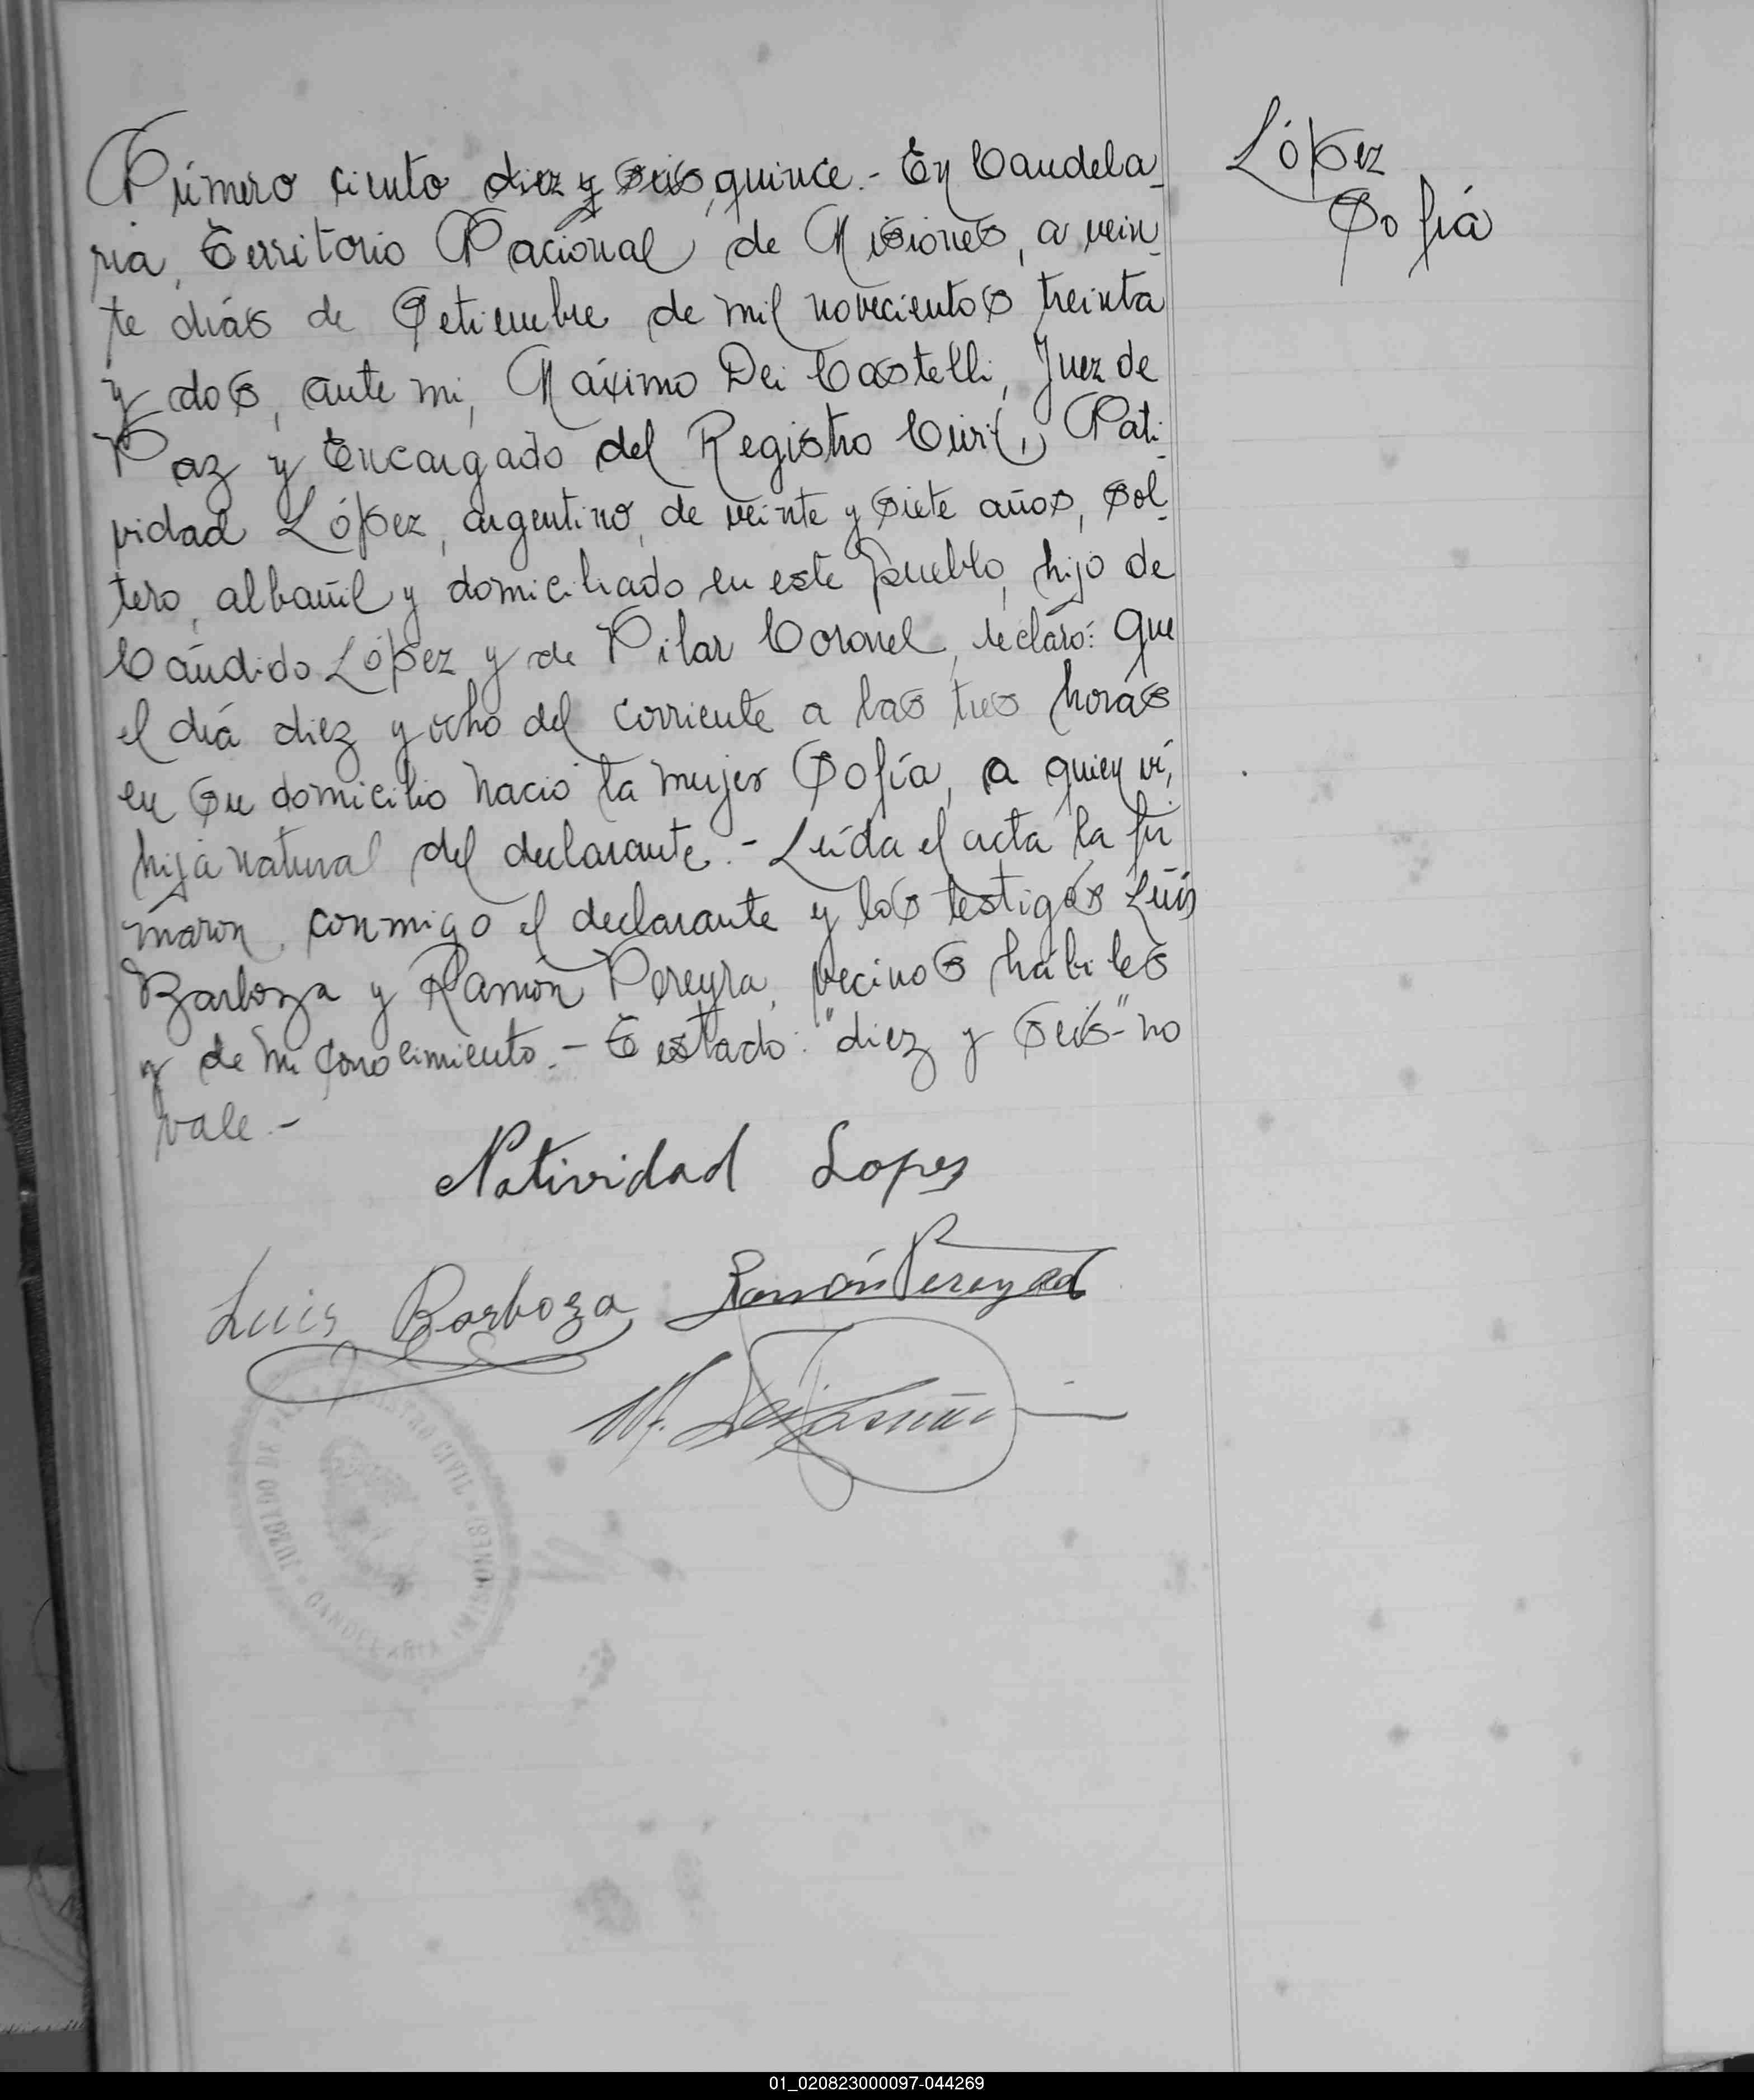 López
Sofía
Número ciento diez y seis, quince.- En Candela-
ria, Territorio Nacional de Misiones, a vein-
te días de Setiembre de mil novecientos treinta
y dos, ante mi, Máximo Dei Castelli, Juez de
Paz y Encargado del Registro Civil, Nati-
vidad López, argentino, de veinte y siete años, sol-
tero, albañil y domiciliado en este pueblo, hijo de
Cándido López y de Pilar Coronel, declaró: Que
el día diez y ocho del corriente a las tres horas
en su domicilio nació la mujer Sofía, a quien ví,
hija natural del declarante.- Leída el acta la fir
maron, conmigo el declarante y los testigos Luis
Barboza y Ramón Pereyra, vecinos hábiles
y de mi conocimiento.- Testado: "diez y seis" no
vale.-
Natividad Lopes
Luis Barboza Ramón Pereyra
M. Dei Castelli
JUZGADO DE PAZ REGISTRO CIVIL CANDELARIA (MISIONES)
01_020823000097-044269